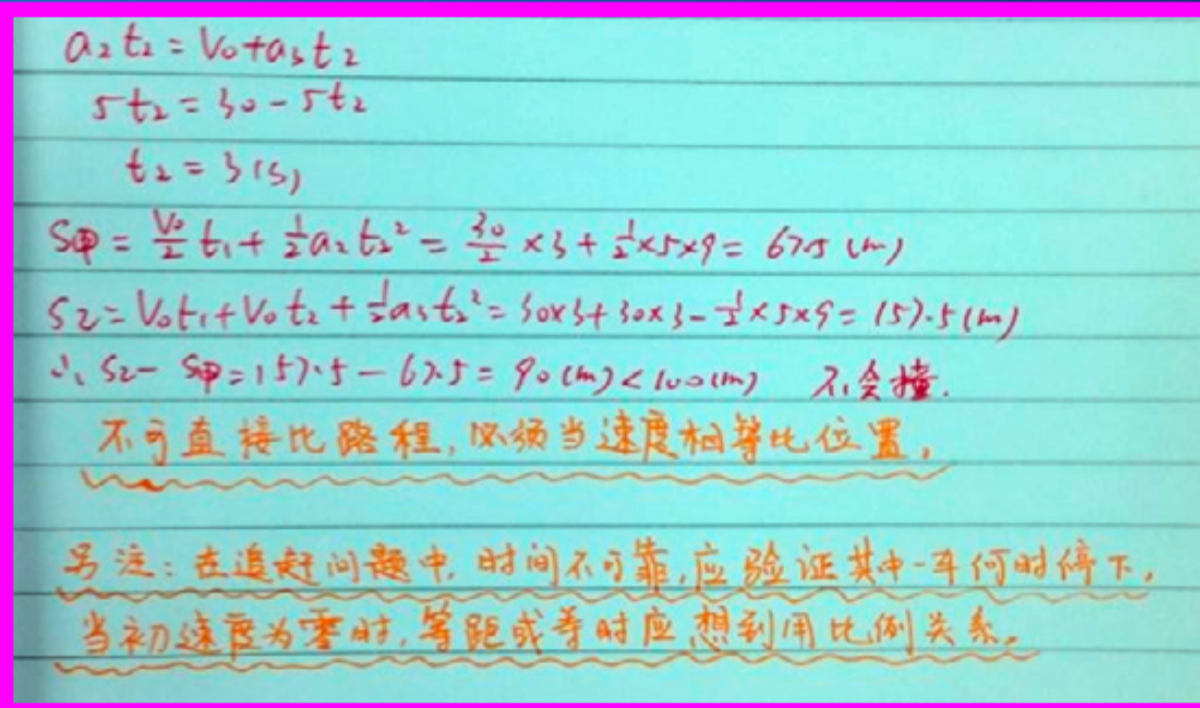 a₂t₂ = V₀+a₃t₂
5t₂ = 30-5t₂
t₂ = 3(s)
S甲 = V₀/2 t₁ + 1/2 a₂t₂² = 30/2 ×3 + 1/2×5×9 = 67.5 (m)
S乙 = V₀t₁+V₀t₂ + 1/2a₃t₂² = 30×3+30×3-1/2×5×9 = 157.5(m)
∴ S乙- S甲 = 157.5-67.5 = 90(m)<100(m) 不会撞.
不可直接比路程,必须当速度相等比位置,
另注:在追赶问题中,时间不可靠,应验证其中一车何时停下,
当初速度为零时,等距或等时应想到用比例关系。